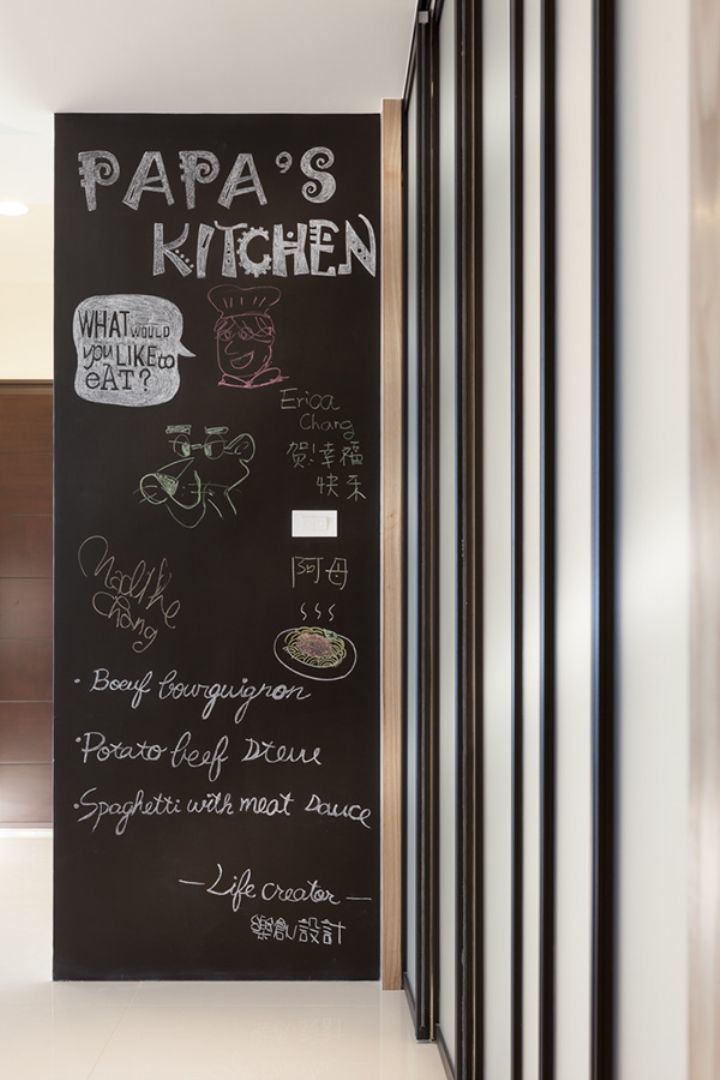 PAPA'S
KITCHEN
WHAT WOULD
you LIKE to
eAT?
Erica
Chang
賀!幸福
快乐
阿母
Chang
• Bœuf bourguignon
• Potato beef Steww
• Spaghetti with meat Sauce
— Life creator —
樂創設計